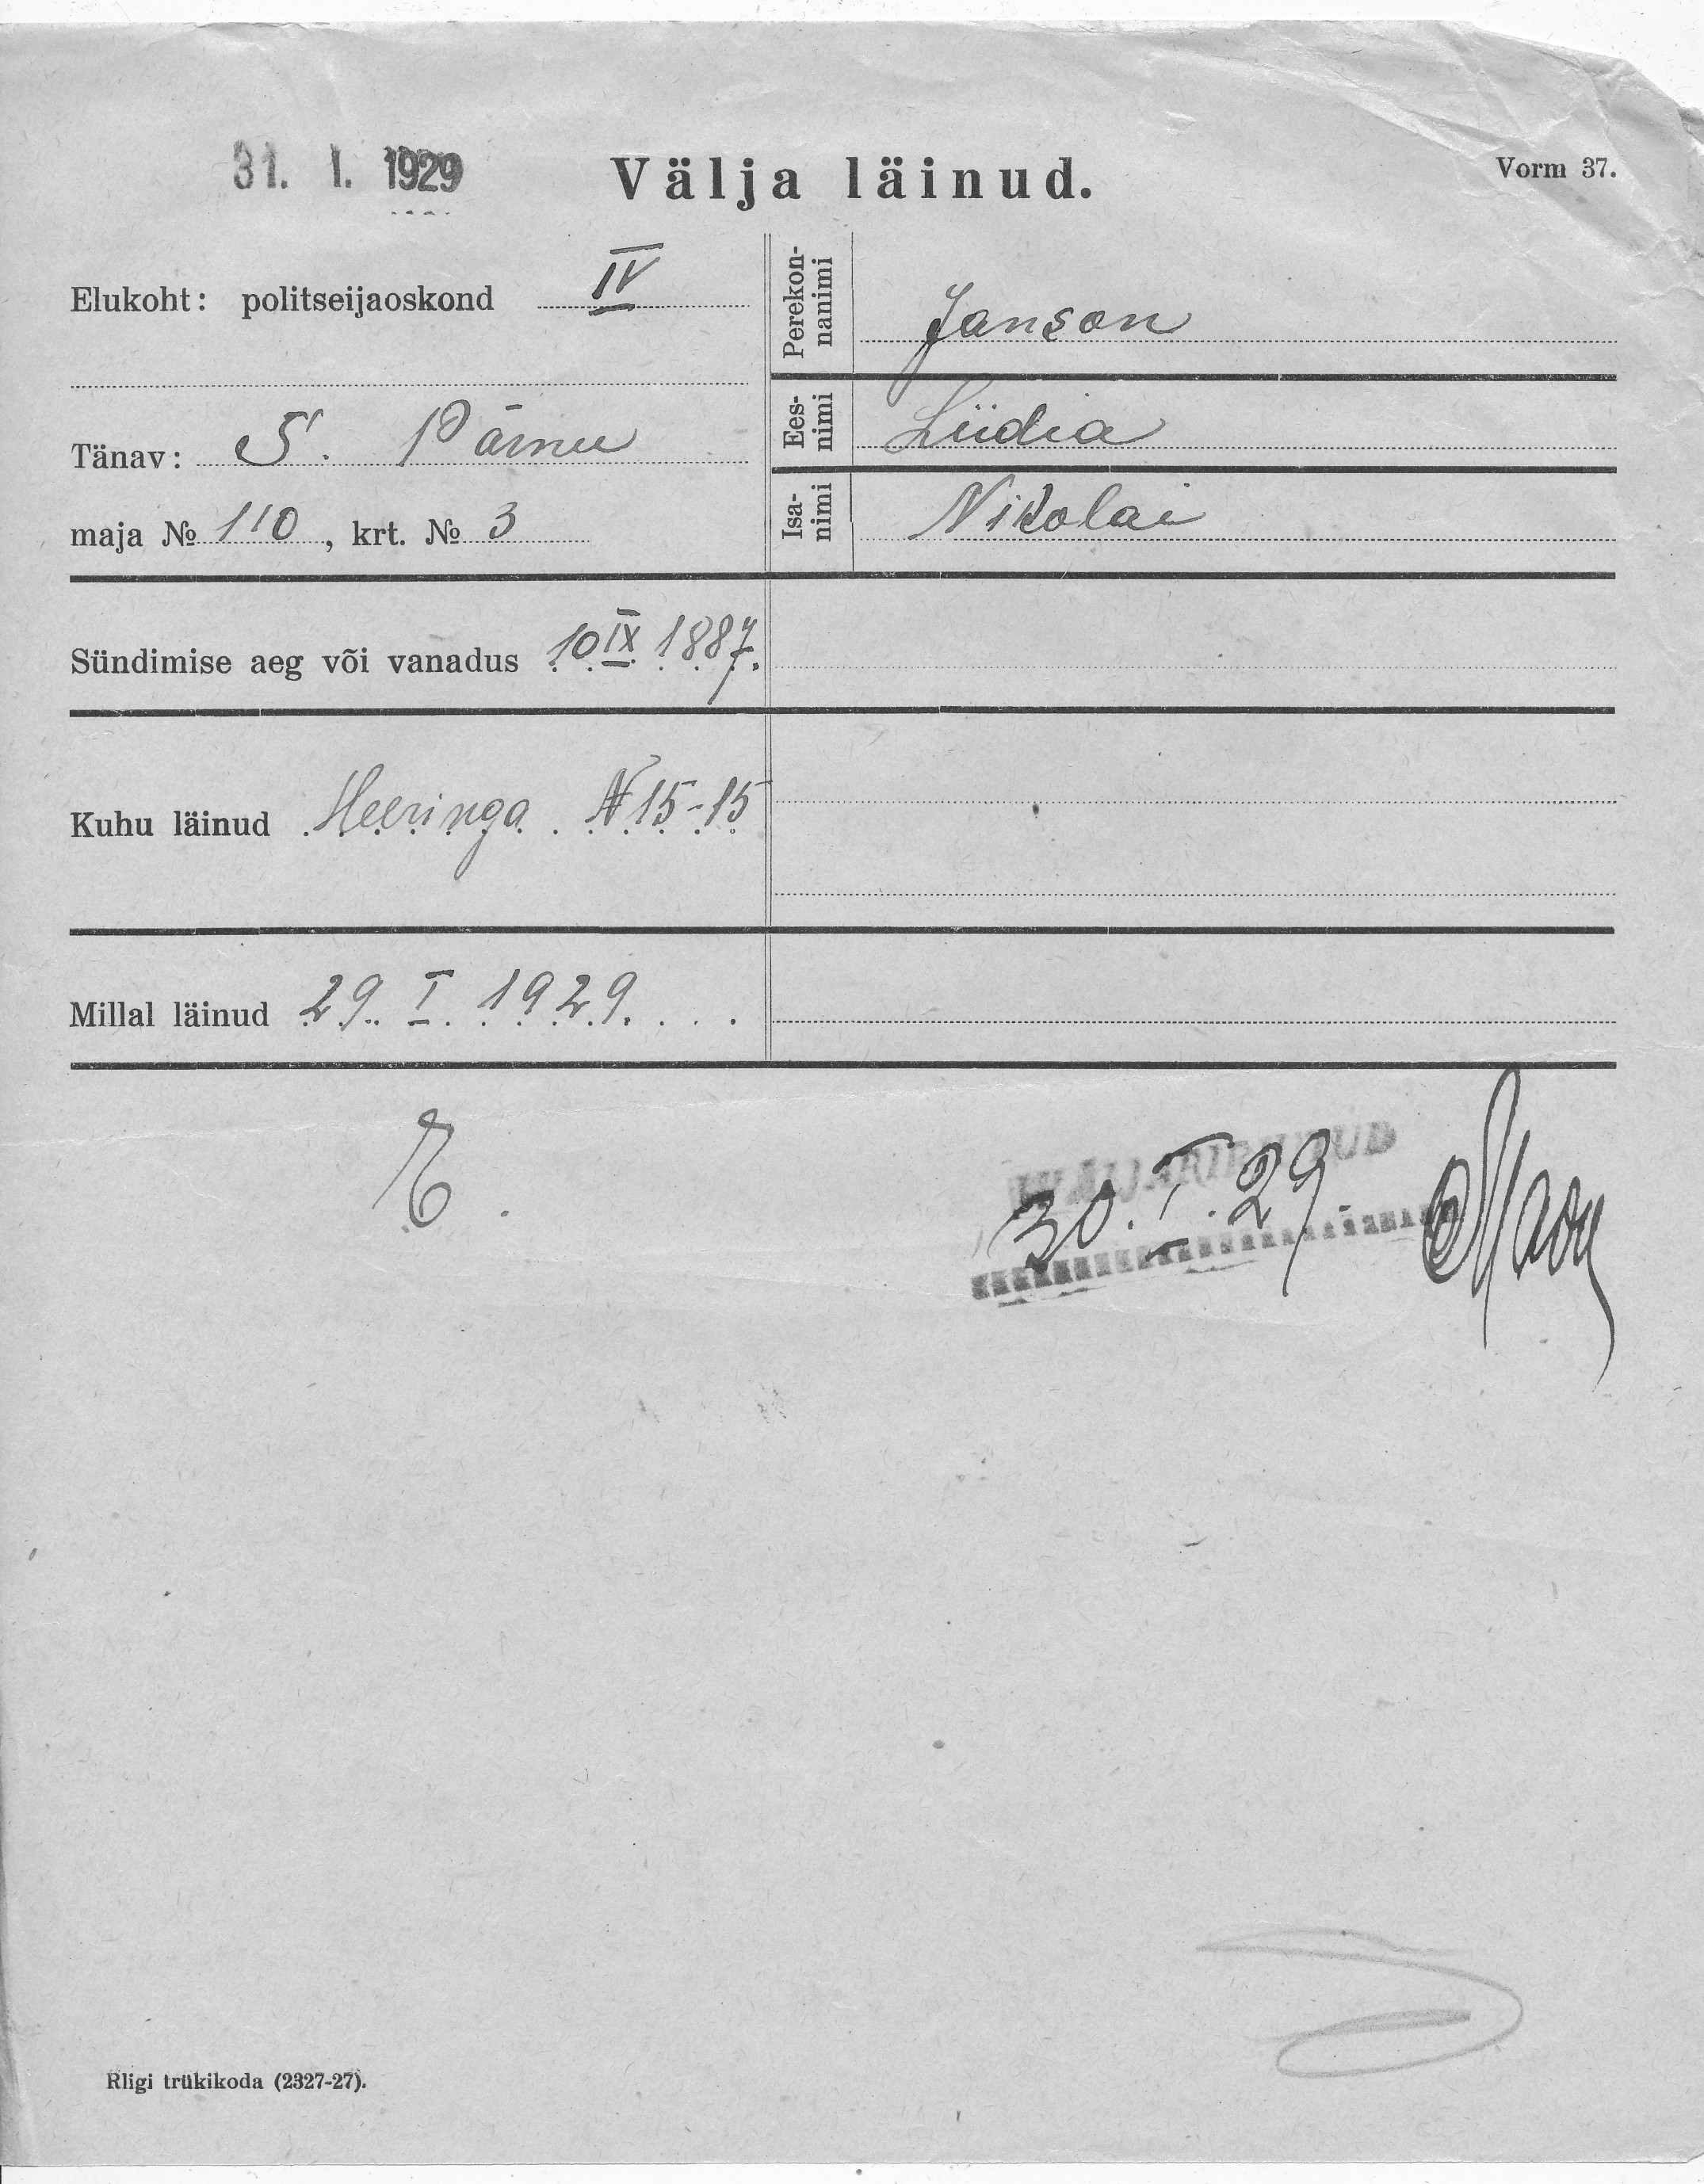 31. I. 1929
Välja läinud.
Vorm 37.
Elukoht: politseijaoskond IV
Tänav: S. Pärnu
maja № 110, krt. № 3
Perekon-
nanimi
Janson
Ees-
nimi
Liidia
Isa-
nimi
Nikolai
Sündimise aeg või vanadus 10 IX 1887.
Kuhu läinud Heeringa N 15-15
Millal läinud 29. I. 1929.
30. I. 29.
Riigi trükikoda (2327-27).